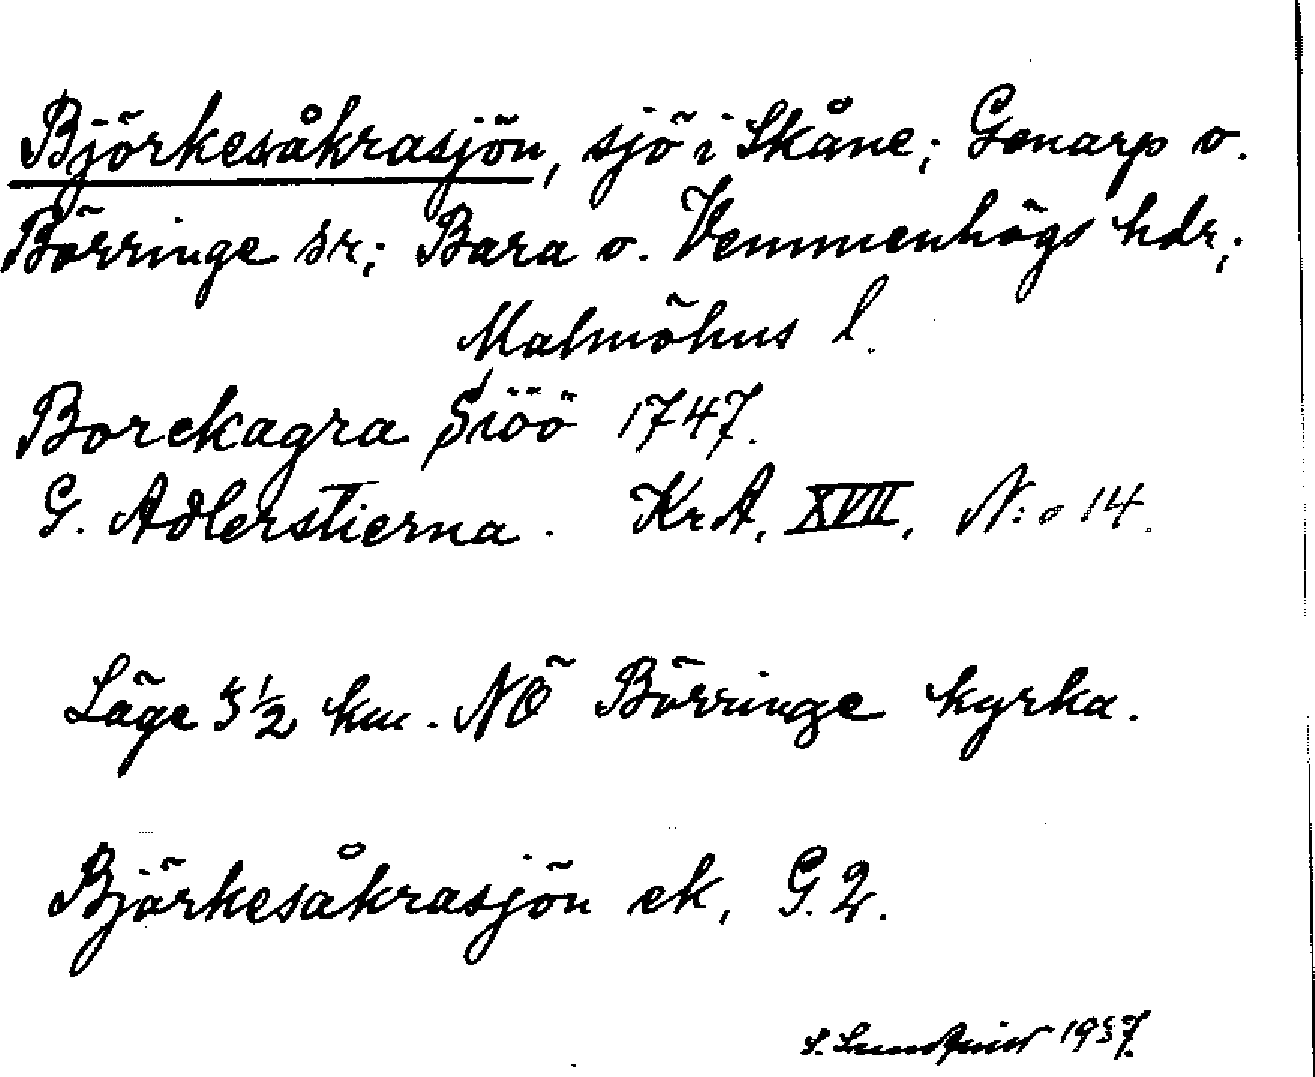 Björkesåkrasjön, sjö i Skåne; Genarp o.
Börringe sr; Bara o. Vemmenhögs hdr;
Malmöhus l.
Borekagra Siöö 1747.
G. Adlerstierna. KrA, XVII, N:o 14.
Läge 5½ km. NÖ Börringe kyrka.
Björkesåkrasjön ek, G.2.
S. Lundqvist 1937.